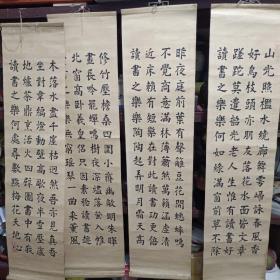 山光照檻水繞廊舞雩歸詠春風香
好鳥枝頭亦朋友落花水面皆文章
蹉跎莫遣韶光老人生惟有讀書好
讀書之樂樂何如綠滿窗前草不除
昨夜庭前葉有聲籬豆花開蟋蟀鳴
不覺商意滿林薄蕭然萬籟涵虛清
近床賴有短檠在對此讀書功更倍
讀書之樂樂陶陶起弄明月霜天高
修竹壓檐桑四圍小齋幽敞明朱曦
晝長吟罷蟬鳴樹夜深燼落螢入幃
北窗高臥羲皇侶只因素稔讀書趣
讀書之樂樂無窮瑤琴一曲來薰風
木落水盡千崖枯迥然吾亦見真吾
坐對韋編燈動壁高歌夜半雪壓廬
地爐茶鼎烹活火四壁圖書中有我
讀書之樂何處尋數點梅花天地心